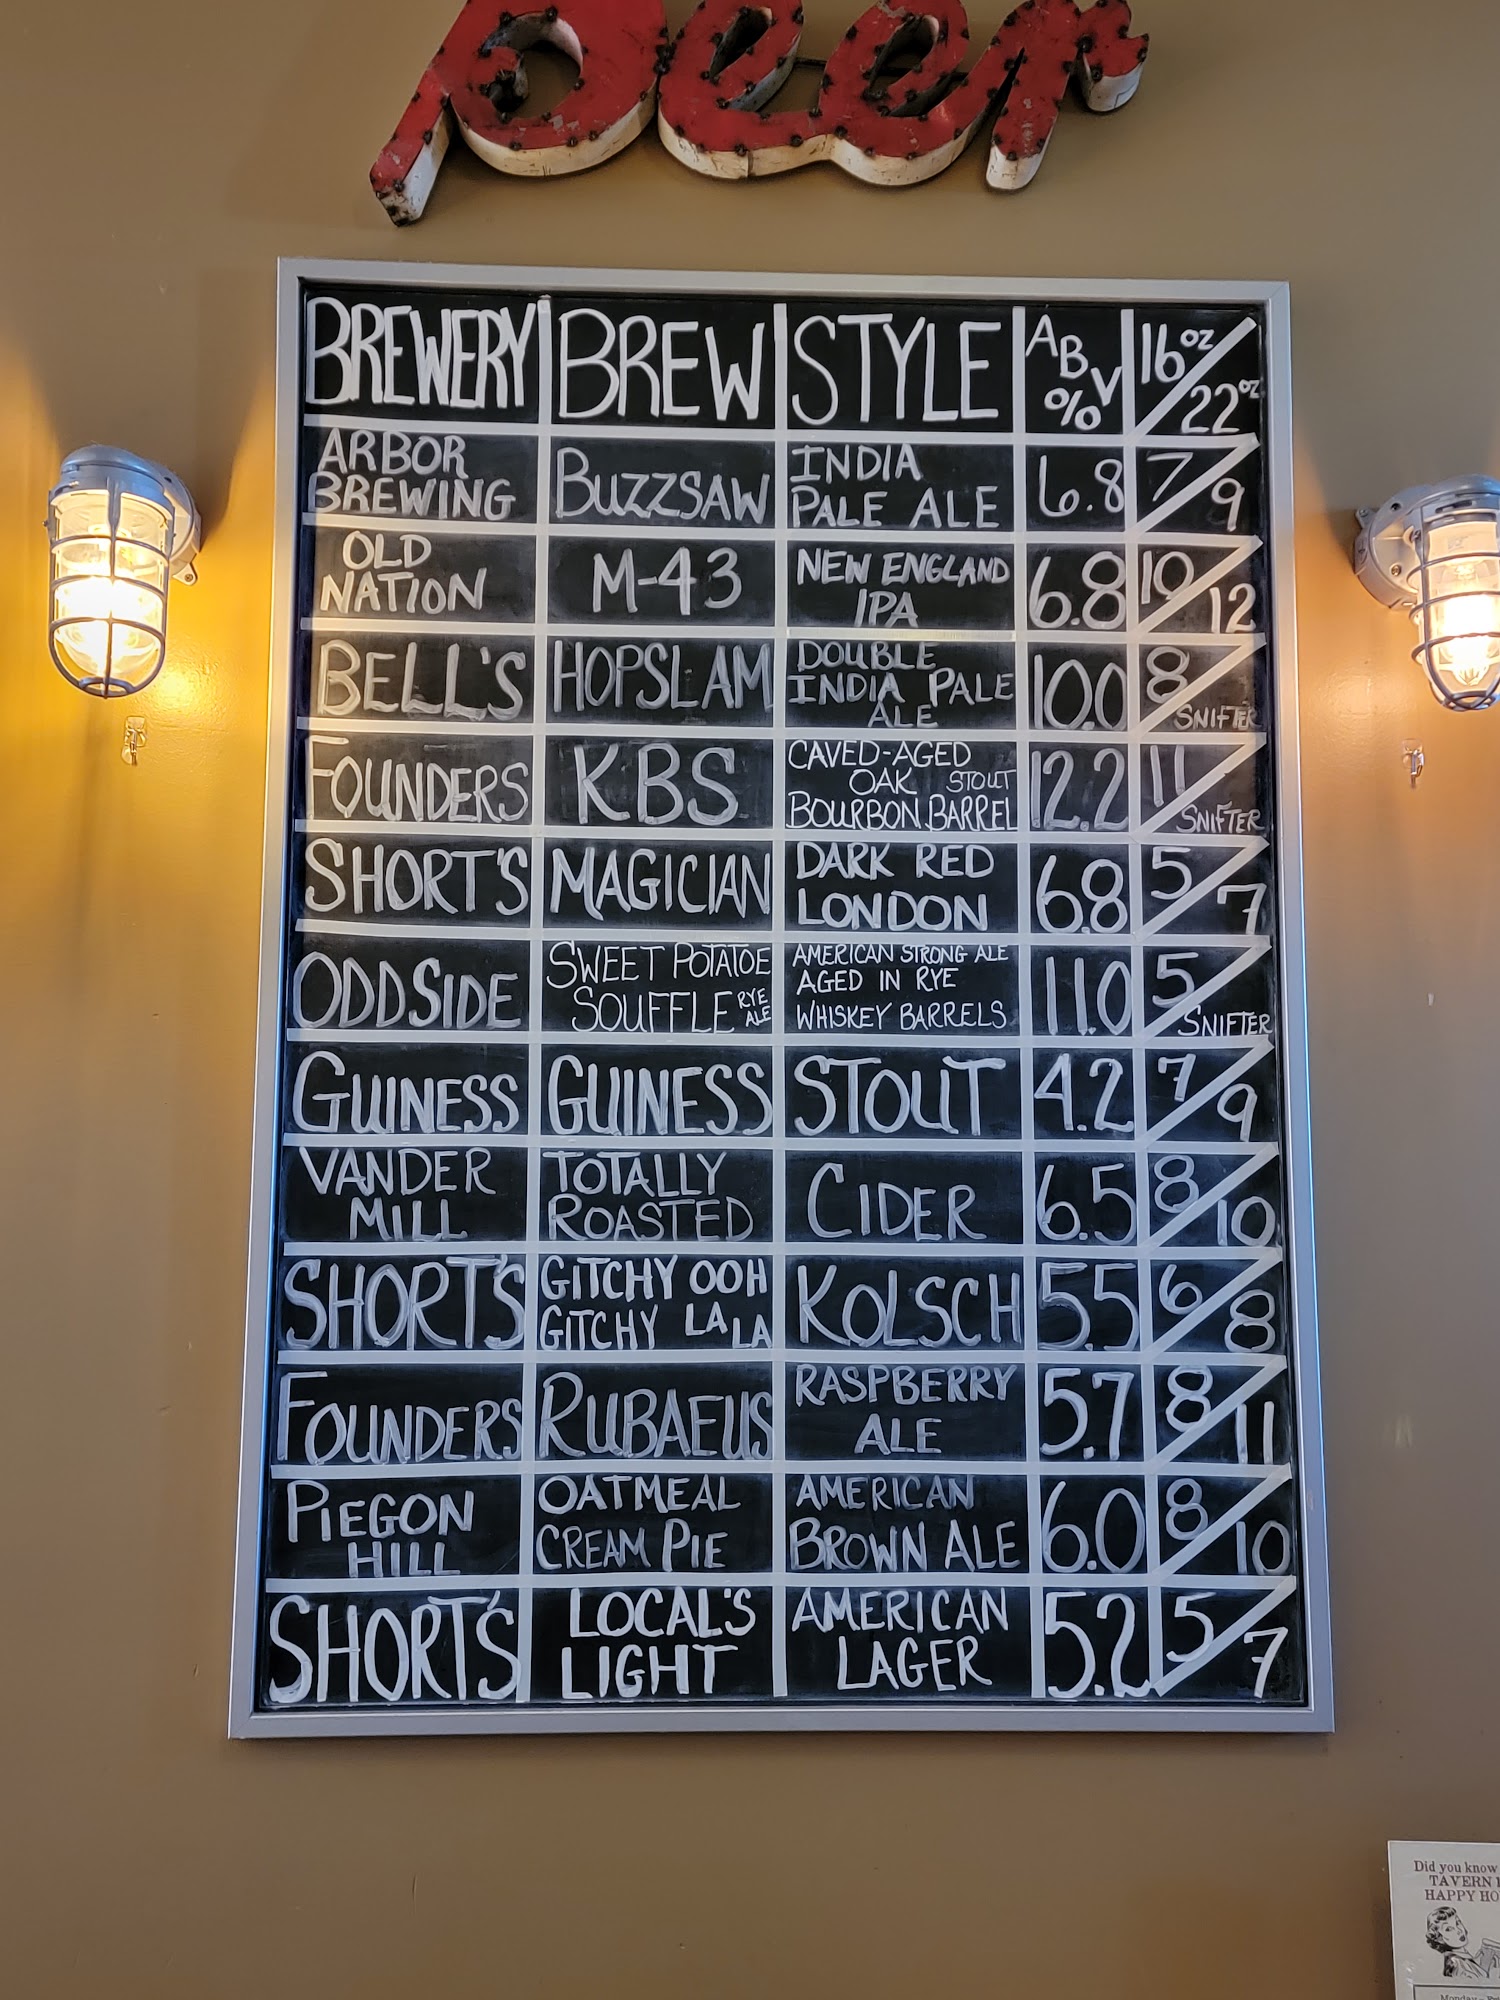 beer
BREWERY BREW STYLE ABV % 16oz/22oz
ARBOR BREWING BUZZSAW INDIA PALE ALE 6.8 7/9
OLD NATION M-43 NEW ENGLAND IPA 6.8 10/12
BELL'S HOPSLAM DOUBLE INDIA PALE ALE 10.0 8/SNIFTER
FOUNDERS KBS CAVED-AGED OAK STOUT BOURBON BARREL 12.2 11/SNIFTER
SHORT'S MAGICIAN DARK RED LONDON 6.8 5/7
ODDSIDE SWEET POTATOE SOUFFLE RYE ALE AMERICAN STRONG ALE AGED IN RYE WHISKEY BARRELS 11.0 5/SNIFTER
GUINESS GUINESS STOUT 4.2 7/9
VANDER MILL TOTALLY ROASTED CIDER 6.5 8/10
SHORT'S GITCHY OOH GITCHY LA LA KOLSCH 5.5 6/8
FOUNDERS RUBAEUS RASPBERRY ALE 5.7 8/11
PIEGON HILL OATMEAL CREAM PIE AMERICAN BROWN ALE 6.0 8/10
SHORT'S LOCAL'S LIGHT AMERICAN LAGER 5.2 5/7
Did you know
TAVERN
HAPPY